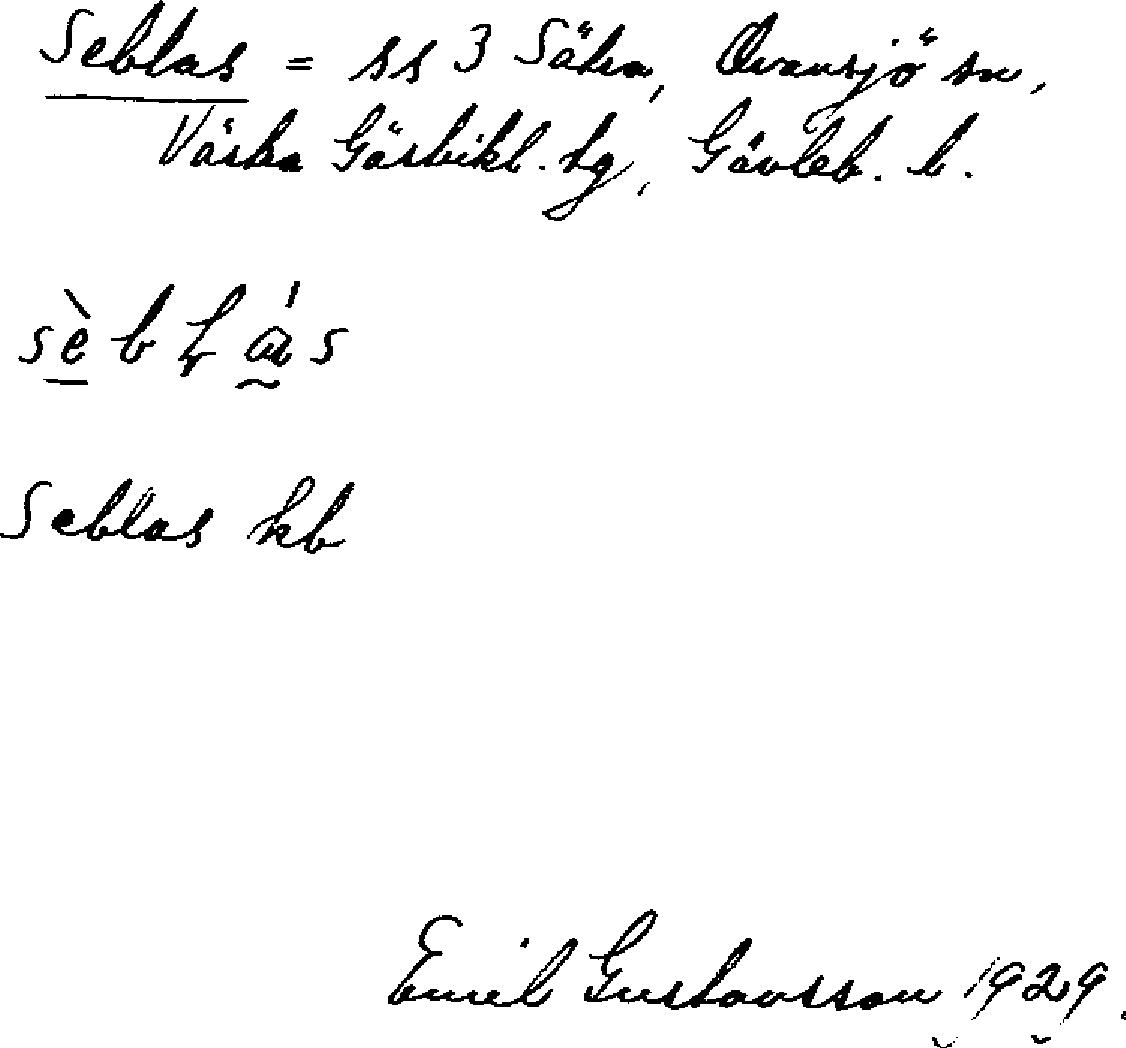 Seblas = ss 3 Sätra, Ovansjö sn,
Västra Gästrikl. tg, Gävleb. l.
Seblas kb
Emil Gustavsson 1929.